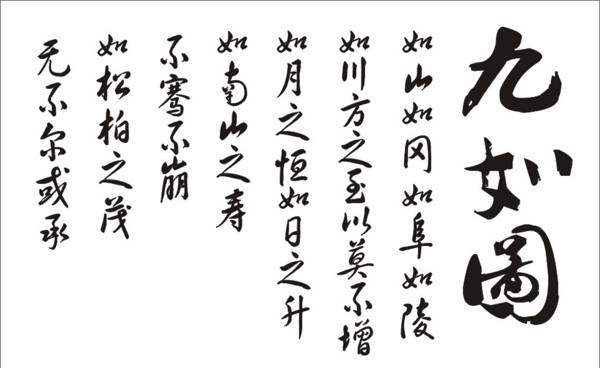 九如圖
如山如冈如阜如陵
如川方之至以莫不增
如月之恒如日之升
如南山之寿
不骞不崩
如松柏之茂
无不尔或承